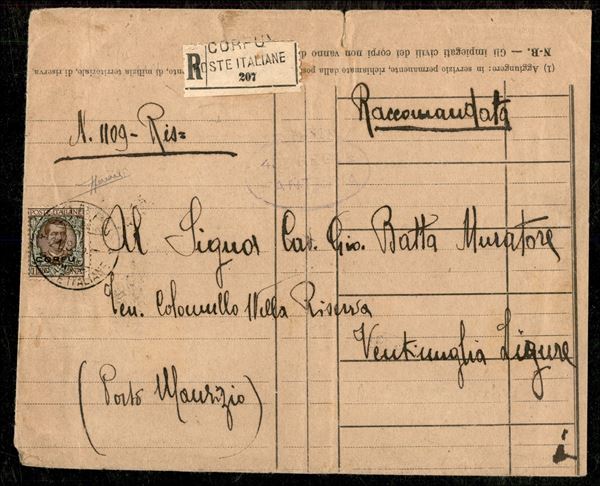 N-B. — Gli impiegati civili dei corpi non vanno
(1) Aggiungere: in servizio permanente, richiamato dalla pos
nto, di milizia territoriale, di riserva
CORFU
R
POSTE ITALIANE
207
Raccomandata
N. 1109 - Ris=
POSTE ITALIANE
CORFU
POSTE ITALIANE
Al Signor Cav. Gio. Batta Muratore
Ten. Colonnello nella Riserva
Ventimiglia Ligure
(Porto Maurizio)